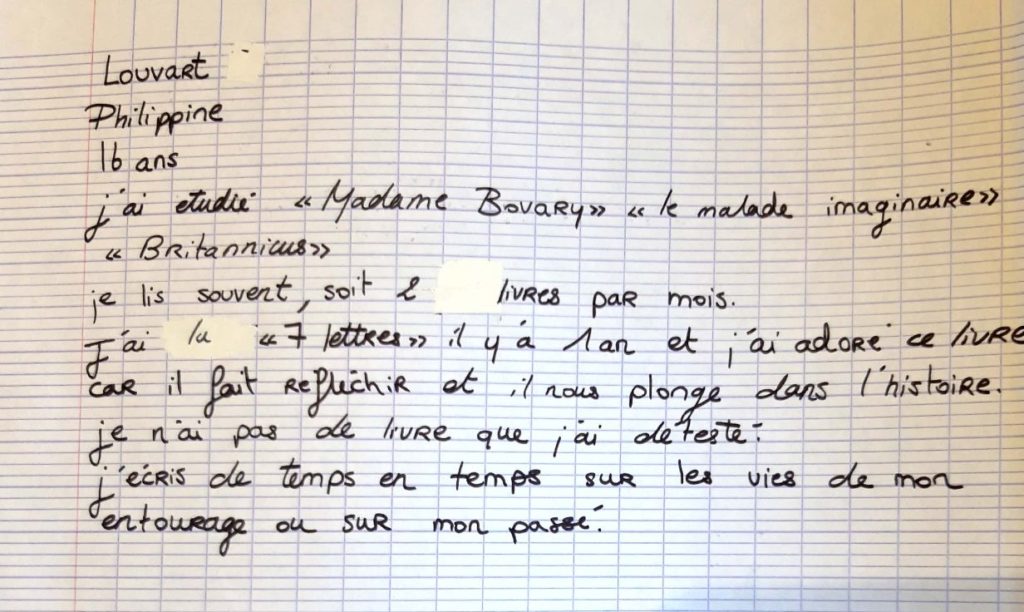 Louvart
Philippine
16 ans
j'ai etudié « Madame Bovary » « le malade imaginaire »
« Britannicus »
je lis souvent, soit 2 livres par mois.
J'ai lu « 7 lettres » il y à 1 an et j'ai adoré ce livre
car il fait reflechir et il nous plonge dans l'histoire.
je n'ai pas de livre que j'ai détesté.
j'écris de temps en temps sur les vies de mon
entourage ou sur mon passé.